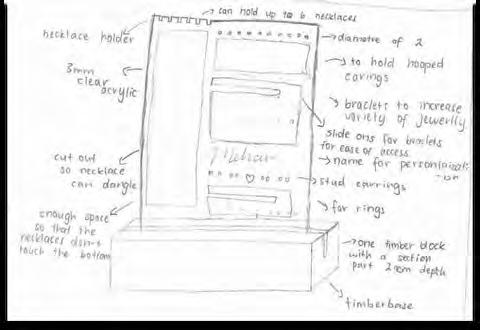 can hold up to 6 necklaces
necklace holder
diametre of 2
to hold hooped
earings
3mm
clear
acrylic
braclets to increase
variety of jewerlly
slide ons for braclets
for ease of access
cut out
so necklace
can dangle
name for personlizati
on
stud earrings
for rings
enough space
so that the
necklaces don't
touch the bottom
one timber block
with a section
part 2cm depth
timberbase